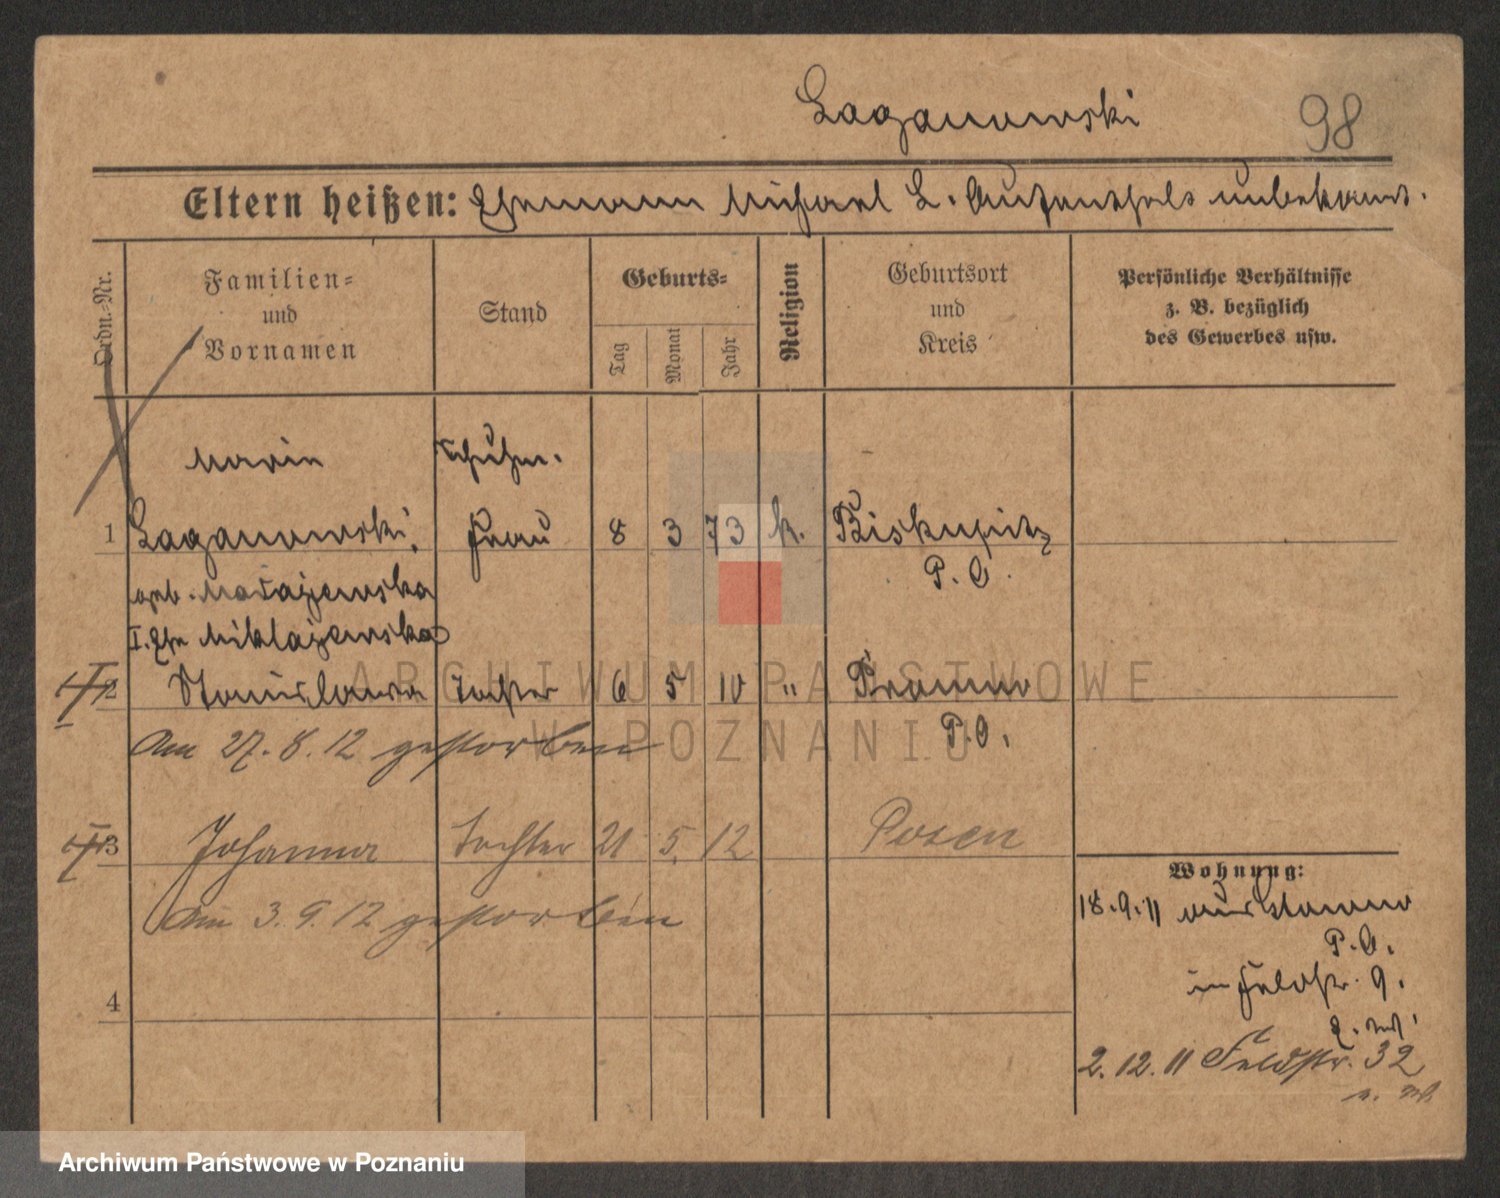 Laganowski 98
Eltern heißen: Ehemann Michael L. Aufenthalt unbekannt.
Ordn.-Nr.
Familien- und Vornamen
Stand
Geburts-
Tag
Monat
Jahr
Religion
Geburtsort und Kreis
Persönliche Verhältnisse z. B. bezüglich des Gewerbes usw.
Maria
1 Laganowski, Frau 8 3 73 k. Biskupitz
geb. P. O.
I. Ehe Miklajewska
2 Stanislawa Tochter 6 5 10 " Promno
P. O.
Am 27. 8. 12 gestorben
3 Johanna Tochter 21 5. 12 Posen
Am 3. 9. 12 gestorben
4
Wohnung:
18.9.11 aus
P. O.
in Feldstr. 9.
2.12.11 Feldstr. 32
ARCHIWUM PAŃSTWOWE
W POZNANIU
Archiwum Państwowe w Poznaniu